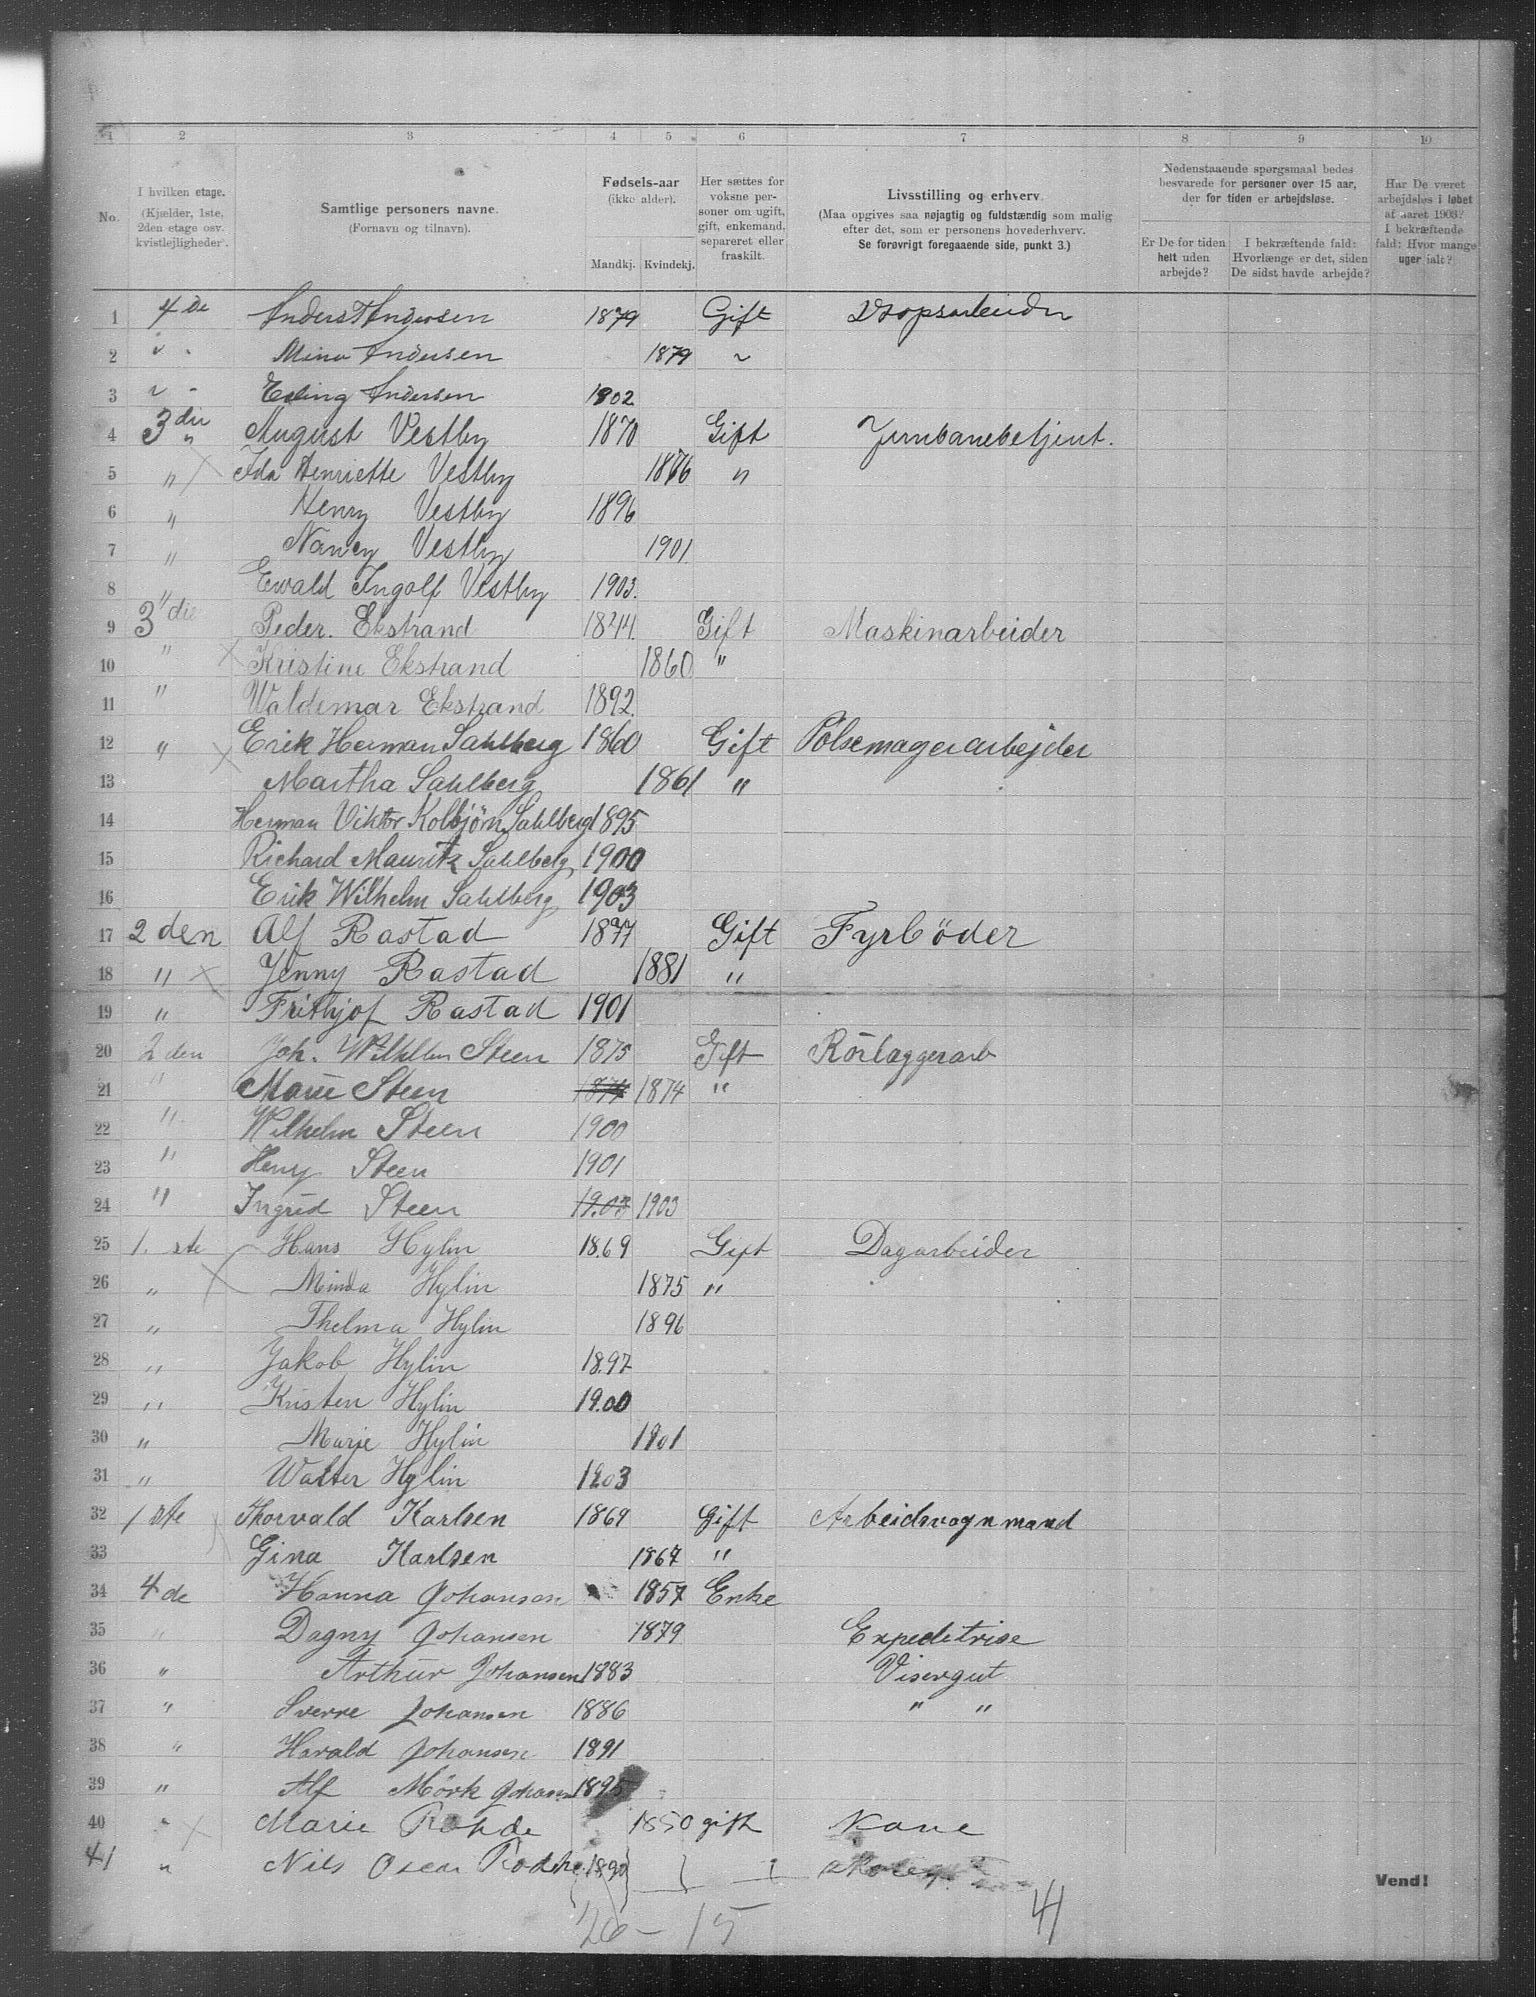 1 2 3 4 5 6 7 8 9 10
No.
I hvilken etage.
(Kjælder, 1ste,
2den etage osv.
kvistlejligheder).
Samtlige personers navne.
(Fornavn og tilnavn).
Fødsels-aar
(ikke alder).
Mandkj. Kvindekj.
Her sættes for
voksne per-
soner om ugift,
gift, enkemand,
separeret eller
fraskilt.
Livsstilling og erhverv.
(Maa opgives saa nøjagtig og fuldstændig som mulig
efter det, som er personens hovederhverv.
Se forøvrigt foregaaende side, punkt 3.)
Nedenstaaende spørgsmaal bedes
besvarede for personer over 15 aar,
der for tiden er arbejdsløse.
Er De for tiden
helt uden
arbejde?
I bekræftende fald:
Hvorlænge er det, siden
De sidst havde arbejde?
Har De været
arbejdsløs i løbet
af aaret 1903?
I bekræftende
fald: Hvor mange
uger ialt?
1 4 de Anders Andersen 1879 Gift
2 " " Mina Andersen 1879 "
3 " " Erling Andersen 1902
4 3 die " August Vestby 1870 Gift Jernbanebetjent.
5 " Ida Henriette Vestby 1876 "
6 " Henry Vestby 1896
7 " Nancy Vestby 1901.
8 " Ewald Ingolf Vestby 1903.
9 3 die Peder. Ekstrand 1844. Gift Maskinarbeider
10 " Kristine Ekstrand 1860 "
11 " Waldemar Ekstrand 1892.
12 " Erik Herman Sahlberg 1860 Gift Pølsemagerarbejder
13 Martha Sahlberg 1861 "
14 Herman Viktor Kolbjørn Sahlberg 1895
15 Richard Mauritz Sahlberg 1900
16 Erik Wilhelm Sahlberg 1903
17 2 den Alf Rastad 1877 Gift Fyrbøder
18 " Jenny Rastad 1881 "
19 " Frithjof Rastad 1901
20 2 den Joh. Wilhelm Steen 1875 Gift Rörlæggerarb
21 " Marie Steen 1874 1874 "
22 " Wilhelm Steen 1900
23 " Henry Steen 1901
24 " Ingrid Steen 1903 1903
25 1. ste Hans Hylin 1869 Gift Dagarbeider
26 " Minda Hylin 1875 "
27 " Thelma Hylin 1896
28 " Jakob Hylin 1897
29 " Kristen Hylin 1900
30 " Marie Hylin 1901
31 " Walter Hylin 1903
32 1 ste Thorvald Karlsen 1869 Gift Arbeidsvognmand
33 Gina Karlsen 1867 "
34 4 de Hanna Johansen 1857 Enke
35 " Dagny Johansen 1879 Expeditrise
36 " Arthur Johansen 1883 Visergut
37 " Sverre Johansen 1886 " "
38 " Harald Johansen 1891
39 " Alf Mørk Johansen 1895
40 " Marie Rohde 1850 gift Kone
41 " Nils Oscar Rodhe 1890
Vend!
26 - 15 41